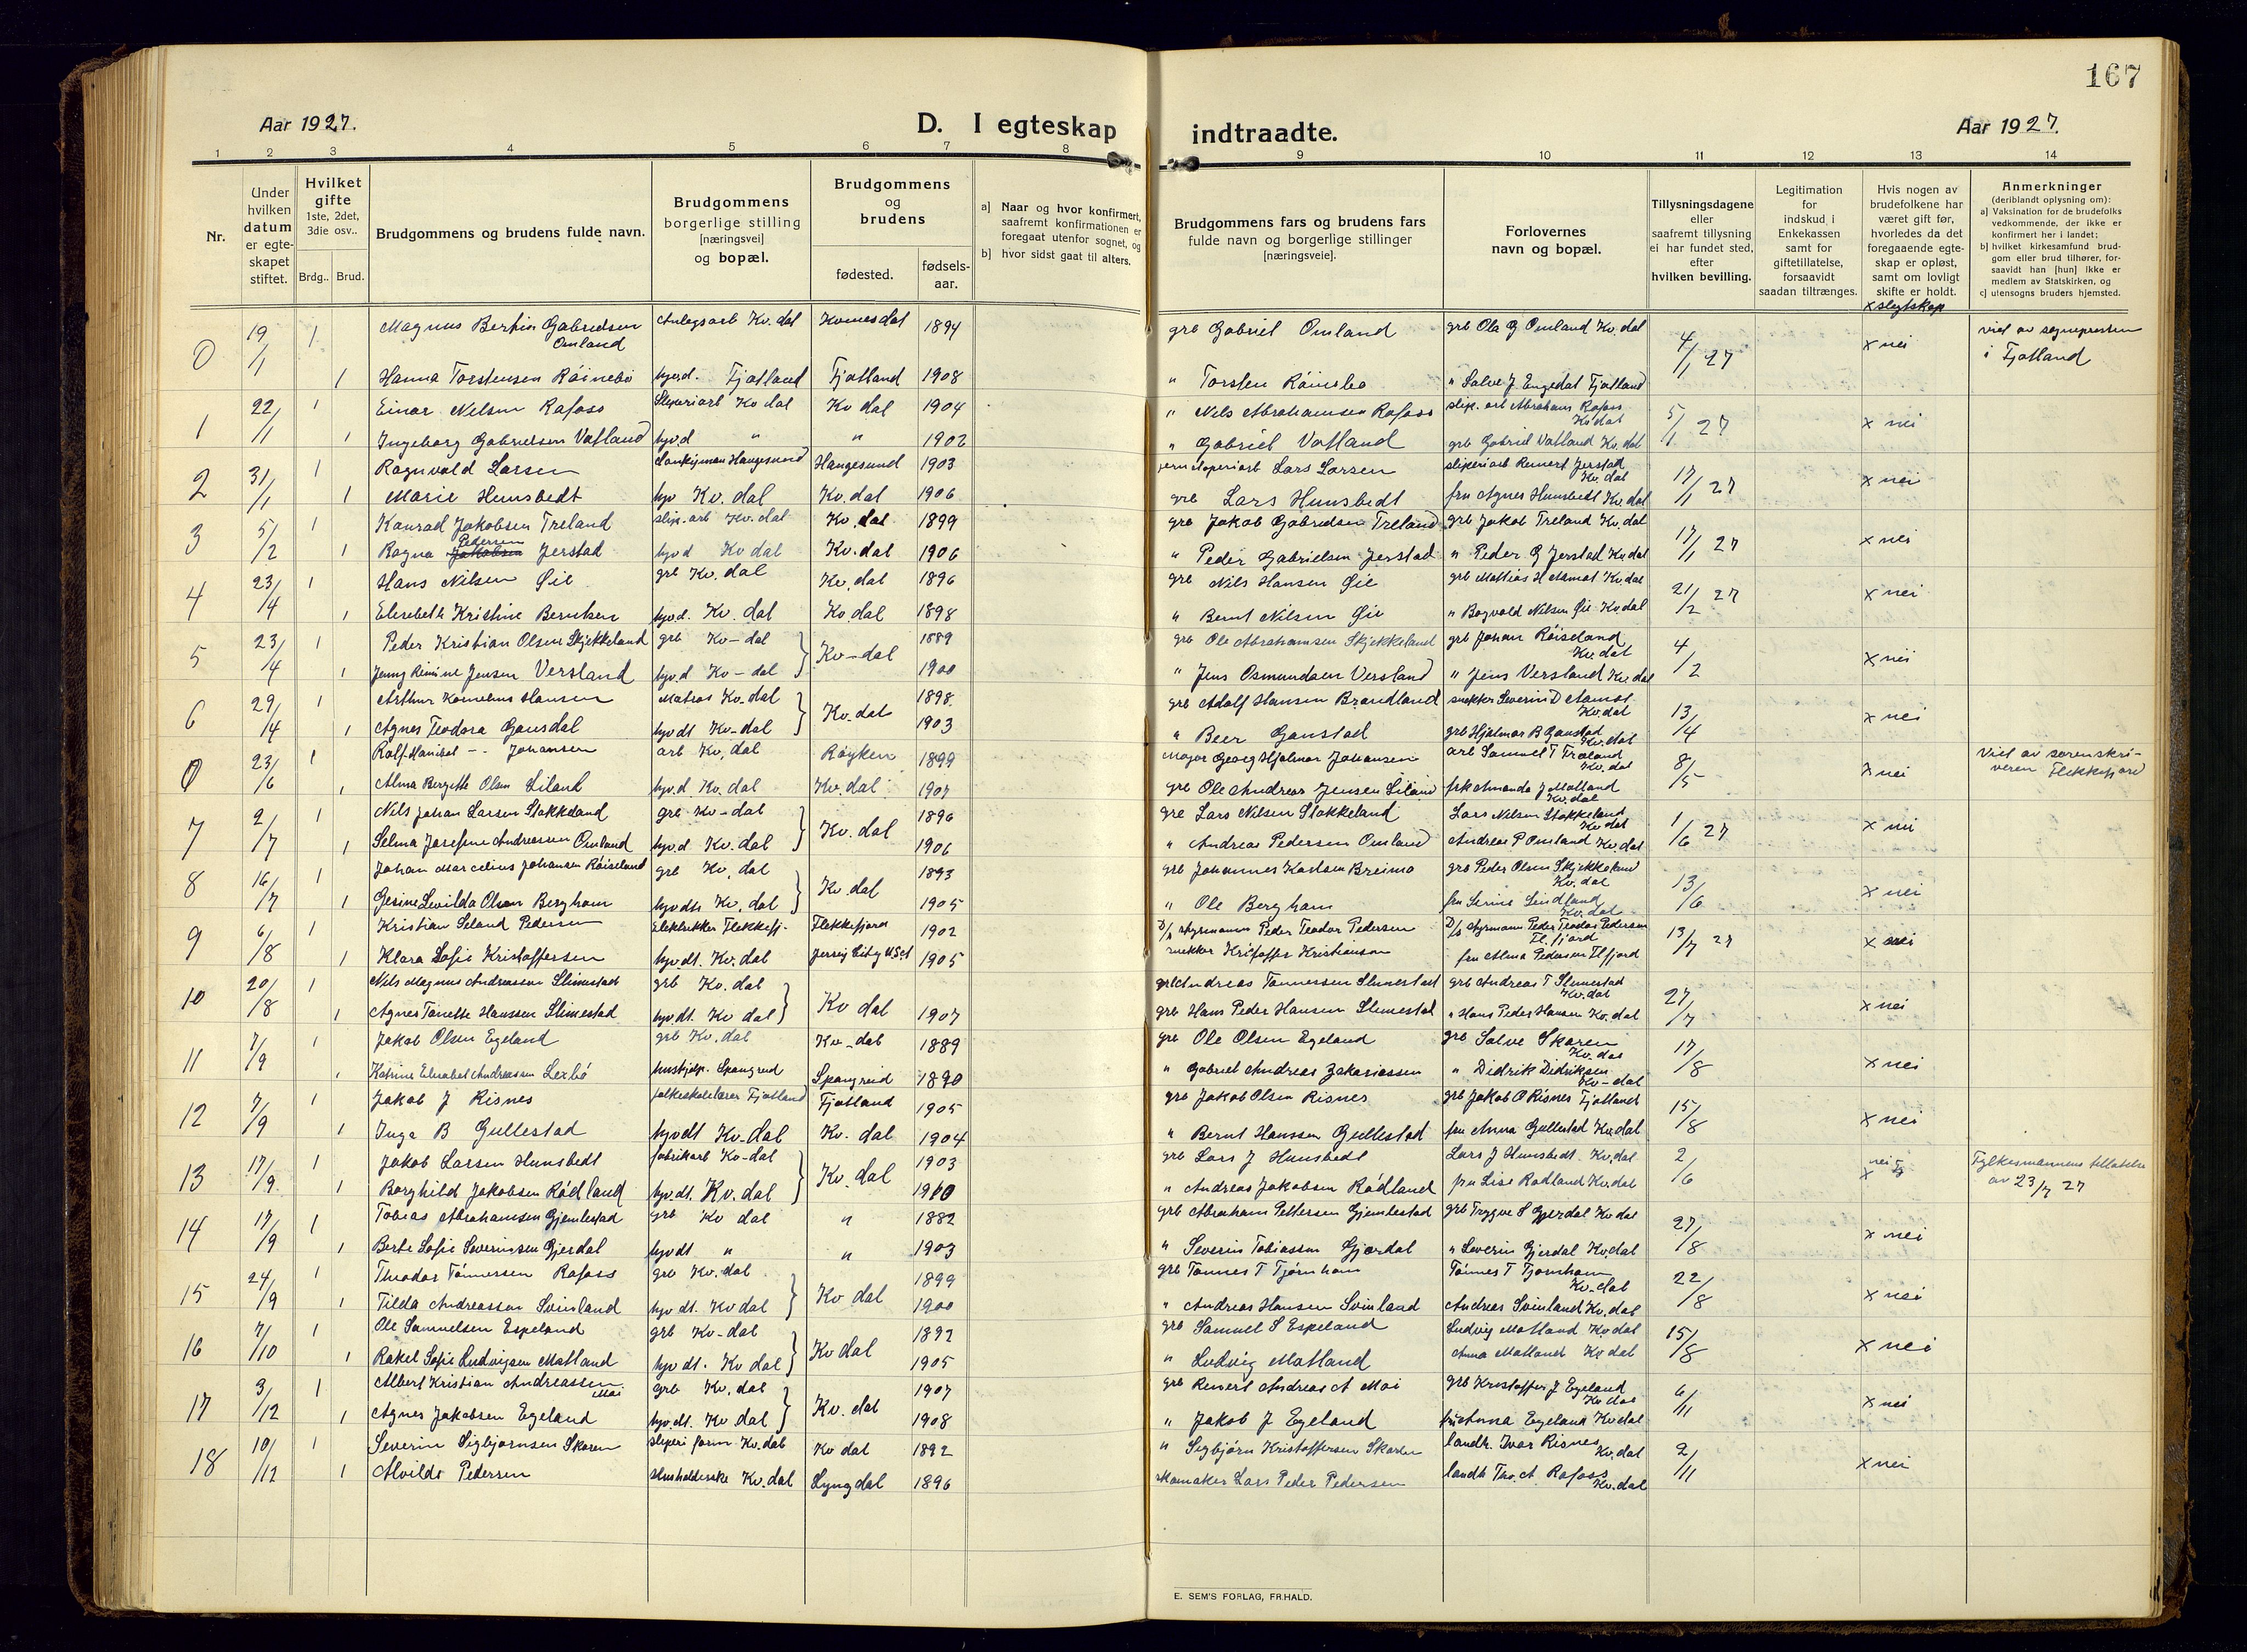 167
Aar 1927.
D. I egteskap
indtraadte.
Aar 1927.
1 2 3 4 5 6 7 8 9 10 11 12 13 14
Nr.
Under hvilken datum er egteskapet stiftet.
Hvilket gifte
1ste, 2det, 3die osv..
Brdg.. Brud.
Brudgommens og brudens fulde navn.
Brudgommens borgerlige stilling [næringsvei] og bopæl.
Brudgommens og brudens
fødested.
fødsels-aar.
a] Naar og hvor konfirmert, saafremt konfirmationen er foregaat utenfor sognet, og
b] hvor sidst gaat til alters.
Brudgommens fars og brudens fars fulde navn og borgerlige stillinger [næringsveie].
Forlovernes navn og bopæl.
Tillysningsdagene eller saafremt tillysning ei har fundet sted, efter hvilken bevilling.
Legitimation for indskud i Enkekassen samt for giftetillatelse, forsaavidt saadan tiltrænges.
Hvis nogen av brudefolkene har været gift før, hvorledes da det foregaaende egteskap er opløst, samt om lovligt skifte er holdt.
x slegtskap
Anmerkninger
(deriblandt oplysning om):
a] Vaksination for de brudefolks vedkommende, der ikke er konfirmert her i landet;
b] hvilket kirkesamfund brudgom eller brud tilhører, forsaavidt han [hun] ikke er medlem av Statskirken, og
c] utensogns bruders hjemsted.
0 19/1 1 Magnus Bertin Gabrielsen Omland Anlegsarb Kv. dal Kvinesdal 1894 grb Gabriel Omland grb Ola G Omland Kv. dal 4/1 27 x nei viet av sognepresten i Fjotland
1 Hanna Torstensen Röinebö hjv.d. Fjotland Fjotland 1908 " Torsten Röinebø " Salve J. Engedal Fjotland
1 22/1 1 Einar Nelsen Rafoss Sliperiarb Kv dal Kv dal 1904 " Nils Abrahamsen Rafoss slip. arb Abraham Rafoss Kv dal 5/1 27 x nei
1 Ingeborg Gabrielsen Vatland hjv.d " " 1902 " Gabriel Vatland grb Gabriel Vatland Kv. dal
2 31/1 1 Ragnvald Larsen Haugesund Haugesund 1903 Lars Larsen sliperiarb Reinert Jerstad Kv. dal 17/1 27 x nei
1 Marie Hunsbedt hjv Kv. dal Kv. dal 1906 grb Lars Hunsbedt fru Agnes Hunsbedt Kv. dal
3 5/2 1 Konrad Jakobsen Treland slip. arb Kv. dal Kv. dal 1899 grb Jakob Gabrielsen Treland grb Jakob Treland Kv. dal 17/1 27 x nei
1 Ragna Pedersen Jerstad hjv.d Kv dal Kv. dal 1906 " Peder Gabrielsen Jerstad " Peder G Jerstad Kv dal
4 23/4 1 Hans Nilsen Øie grb Kv. dal Kv. dal 1896 grb Nils Hansen Øie grb Mathias H Aamot Kv. dal 21/2 27 x nei
1 Elisebeth Kristine Berntsen hjv.d. Kv. dal Kv. dal 1898 " Bernt Nilsen Øie " Bogvald Nilsen Øie Kv dal
5 23/4 1 Peder Kristian Olsen Skjekkeland grb Kv-dal Kv-dal 1889 grb Ole Abrahamsen Skjekkeland grb Johan Röiseland Kv. dal 4/2 x nei
1 Jenny Jensen Versland hjv.d Kv-dal 1900 " Jens Osmundsen Versland " Jens Versland Kv. dal
6 29/4 1 Arthur Kornelius Hansen Matros Kv-dal Kv-dal 1898 grb Adolf Hansen Brandland snekker Severin D Aamot Kv. dal 13/4 x nei
1 Agnes Teodora Gausdal hjv.dt Kv-dal 1903 " Beer Ganstad grb Hjalmar B Ganstad Kv. dal
0 23/6 1 Johansen arb Kv. dal Røyken 1899 Major Georg Hjalmar Johansen arb Samuel T Træland Kv. dal 8/5 x nei Viet av sorenskriveren Flekkefjord
1 Alma Bergitte Olsen Liland hjv.d. Kv. dal Kv. dal 1907 grb Ole Andreas Jensen Liland frk Amanda J Matland Kv. dal
7 2/7 1 Nils Johan Larsen Stokkeland grb Kv-dal Kv. dal 1896 grb Lars Nilsen Stokkeland Lars Nilsen Stokkeland Kv. dal 1/6 27 x nei
1 Selma Josefine Andreassen Omland hjv.d Kv. dal 1906 " Andreas Pedersen Omland Andreas P Omland Kv. dal
8 16/7 1 Johan Marcelius Johansen Röiseland grb Kv. dal Kv. dal 1893 grb Johannes Karlsen Breimo grb Peder Olsen Skjekkeland Kv. dal 13/6 x nei
1 Gesine Levilda Olsen Bergham hjv.dtr Kv. dal 1905 " Ole Bergham fru Sirine Lindland Kv. dal
9 6/8 1 Kristian Seland Pedersen Elektriker Flekkefj. Flekkefjord 1902 D/s styrmann Peder Teodor Pedersen D/s styrmann Peder Teodor Pedersen Fl. fjord 13/7 27 x nei
1 Klara Sofie Kristoffersen hjv.dt. Kv. dal Jersey City U.S.A 1905 snekker Kristoffer Kristiansen fru Alma Pedersen Fl fjord
10 20/8 1 Nils Magnus Andreassen Slimestad grb Kv. dal Kv dal grb Andreas Tønnessen Slimestad grb Andreas T Slimestad Kv. dal 27/7 x nei
1 Agnes Tanette Hanssen Slimestad hjv.dt. Kv dal 1907 grb Hans Peder Hansen Slimestad " Hans Peder Hansen Kv. dal
11 7/9 1 Jakob Olsen Egeland grb Kv. dal Kv-dal 1889 grb Ole Olsen Egeland grb Salve Skaren Kv. dal 17/8 x nei
1 Katrine Elisabet Andreassen Lerbö hushjelp. Spangreid Spangreid 1890 " Gabriel Andreas Zakariassen " Didrik Didriksen Kv-dal
12 7/9 1 Jakob J Risnes folkeskolelærer Fjotland Fjotland 1905 grb Jakob Olsen Risnes grb Jakob O Risnes Fjotland 15/8 x nei
1 Inga B Gullestad hjv.dt Kv-dal Kv. dal 1904 " Bernt Hanssen Gullestad fru Anna Gullestad Kv. dal
13 17/9 1 Jakob Larsen Hunsbedt fabrikarb Kv-dal Kv. dal 1903 grb Lars J Hunsbedt Lars J Hunsbedt Kv. dal 2/6 x nei Fylkesmannens tillatelse av 23/7 27
1 Borghild Jakobsen Rødland hjv.dt. Kv. dal 1910 " Andreas Jakobsen Rødland fru Lise Rødland Kv. dal
14 17/9 1 Tobias Abrahamsen Gjemlestad grb Kv dal " 1882 grb Abraham Pettersen Gjemlestad grb Trygve S Gjerdal Kv dal 27/8 x nei
1 Berte Sofie Severinsen Gjerdal hjv.dt " " 1903 " Severin Tobiassen Gjerdal " Severin Gjerdal Kv. dal
15 24/9 1 Theodor Tønnessen Rafoss grb Kv. dal Kv dal 1899 grb Tønnes T Tjørnhom Tønnes T Tjørnhom Kv. dal 22/8 x nei
1 Tilda Andreassen Svinland hjv.dt. Kv dal 1900 " Andreas Hansen Svinland Andreas Svinland Kv. dal
16 7/10 1 Ole Samuelsen Espeland grb Kv-dal Kv dal 1892 grb Samuel S Espeland Ludvig Matland Kv. dal 15/8 x nei
1 Rakel Sofie Ludvigsen Matland hjv.dt. Kv dal 1905 " Ludvig Matland Anna Matland Kv dal
17 3/12 1 Albert Kristian Andreassen Moi grb Kv. dal Kv. dal 1907 grb Reinert Andreas A Moi grb Kristoffer J Egeland Kv dal 6/11 x nei
1 Agnes Jakobsen Egeland hjv.dt. Kv dal 1908 " Jakob J Egeland fru Anna Egeland Kv dal
18 10/12 1 Severin Sigbjørnsen Skaren sliperi form Kv. dal Kv dal 1892 " Sigbjørn Kristoffersen Skaren landh. Ivar Risnes Kv. dal 2/11 x nei
1 Alvilde Pedersen Husholderske Kv. dal Lyngdal 1896 skomaker Lars Peder Pedersen landh Th. A Rafoss Kv. dal
E. SEM'S FORLAG, FR.HALD.